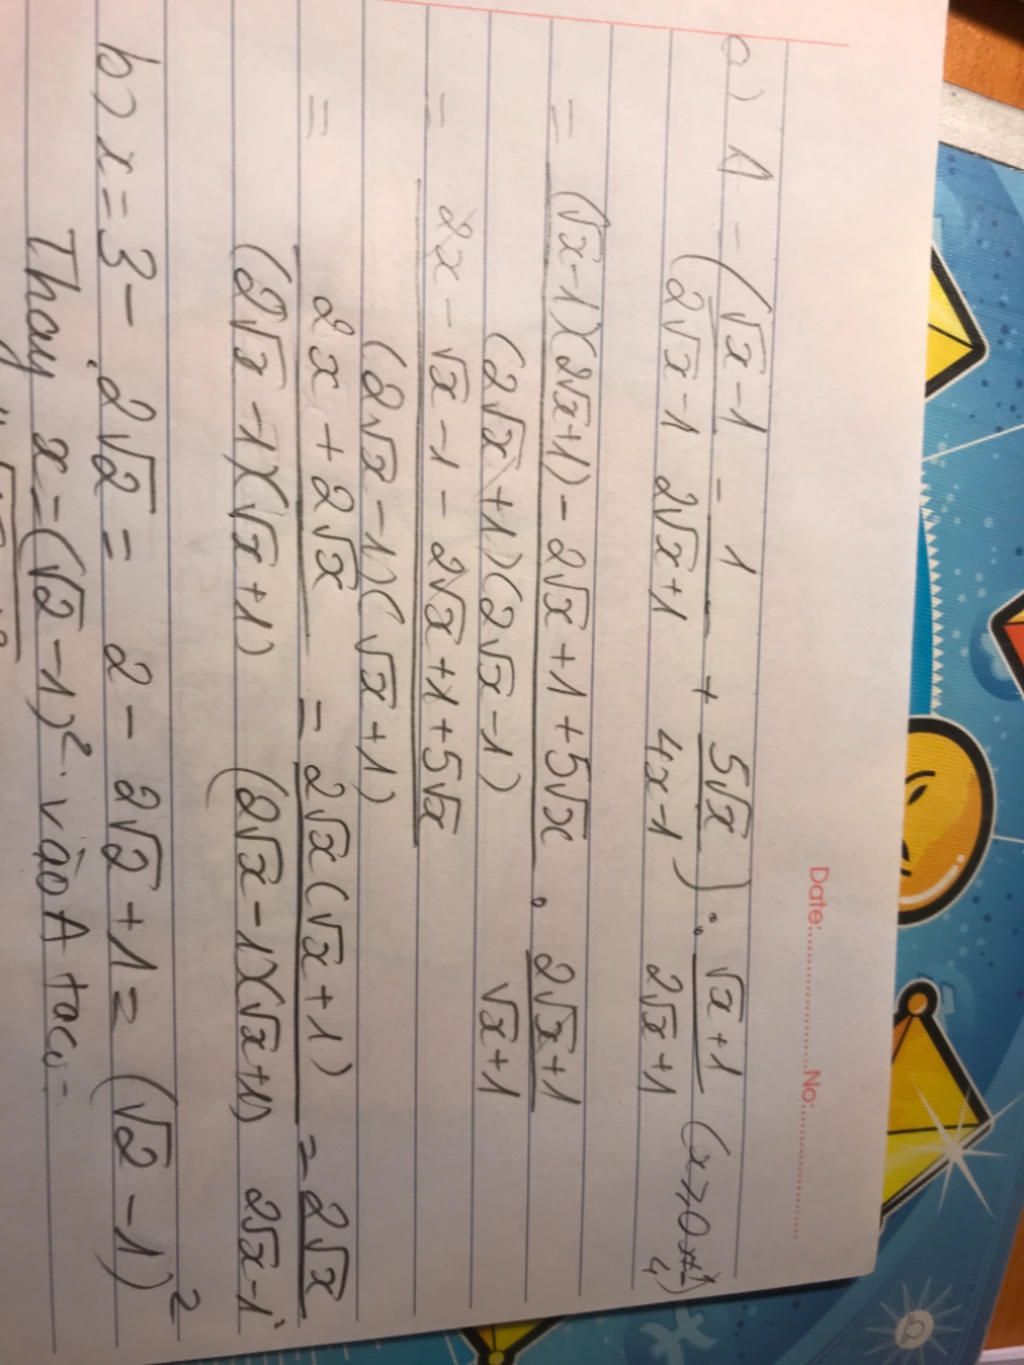 Date:..................No:..................
a) A = (√x-1 / 2√x-1 - 1 / 2√x+1 + 5√x / 4x-1) : √x+1 / 2√x+1 (x≥0 ≠ 1/4)
= (√x-1)(2√x+1) - 2√x+1+5√x / (2√x+1)(2√x-1) . 2√x+1 / √x+1
= 2x-√x-1-2√x+1+5√x / (2√x-1)(√x+1)
= 2x+2√x / (2√x-1)(√x+1) = 2√x(√x+1) / (2√x-1)(√x+1) = 2√x / 2√x-1
b) x=3-2√2 = 2-2√2+1 = (√2-1)²
Thay x=(√2-1)² vào A ta có